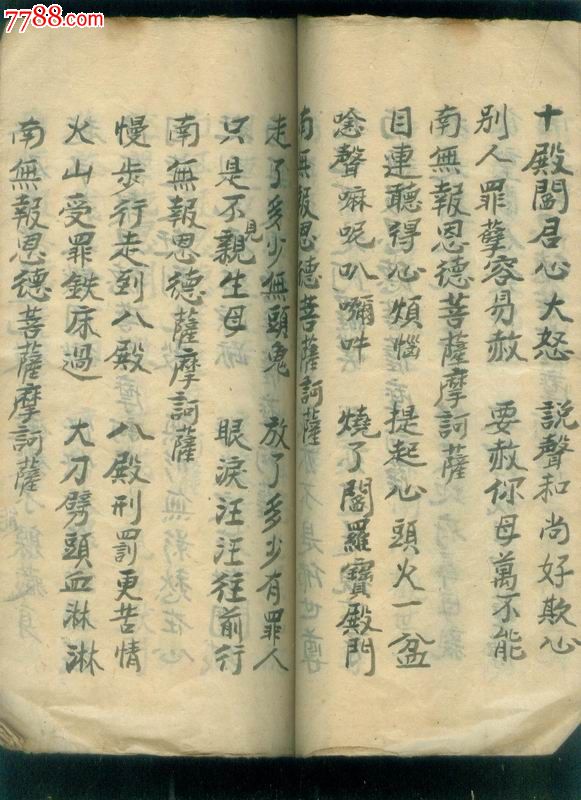 7788.com
十殿閻君心大怒 說聲和尚好欺心
別人罪孽容易赦 要赦你母萬不能
南無報恩德菩薩摩訶薩
目連聽得心煩惱 提起心頭火一盆
唸聲嘛呢叭嚩吽 燒了閻羅寶殿門
南無報恩德菩薩訶薩
走了多少無頭鬼 放了多少有罪人
只是不見親生母 眼淚汪汪往前行
南無報恩德薩摩訶薩
慢步行走到八殿 八殿刑罰更苦情
火山受罪鉄床過 大刀劈頭血淋淋
南無報恩德菩薩摩訶薩